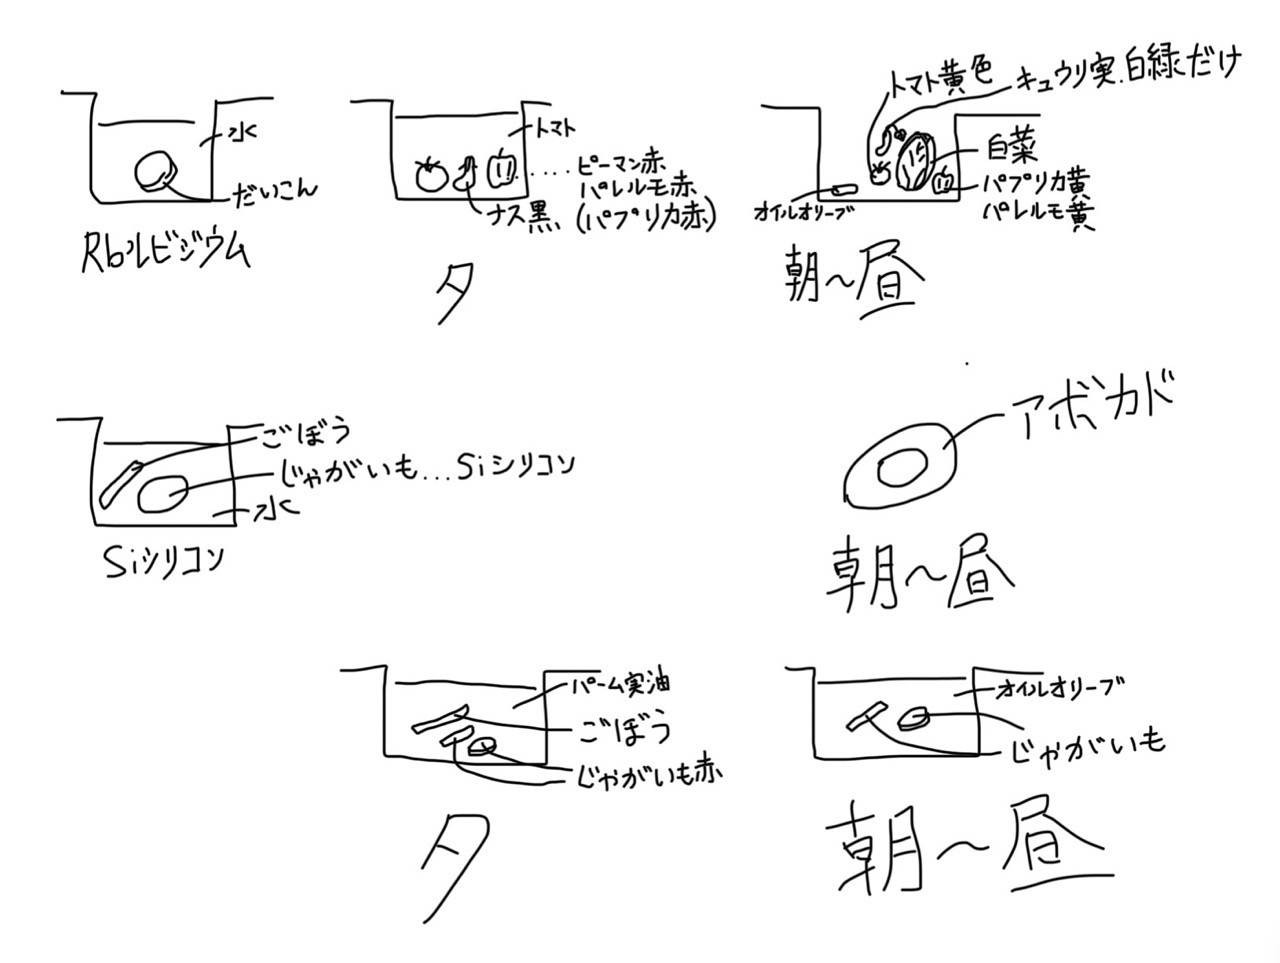 水
だいこん
Rbルビジウム
トマト
ピーマン赤
パレルモ赤
(パプリカ赤)
ナス黒
夕
トマト黄色
キュウリ実.白緑だけ
白菜
パプリカ黄
パレルモ黄
オイルオリーブ
朝〜昼
ごぼう
じゃがいも...Siシリコン
水
Siシリコン
アボカド
朝〜昼
パーム実油
ごぼう
じゃがいも赤
夕
オイルオリーブ
じゃがいも
朝〜昼